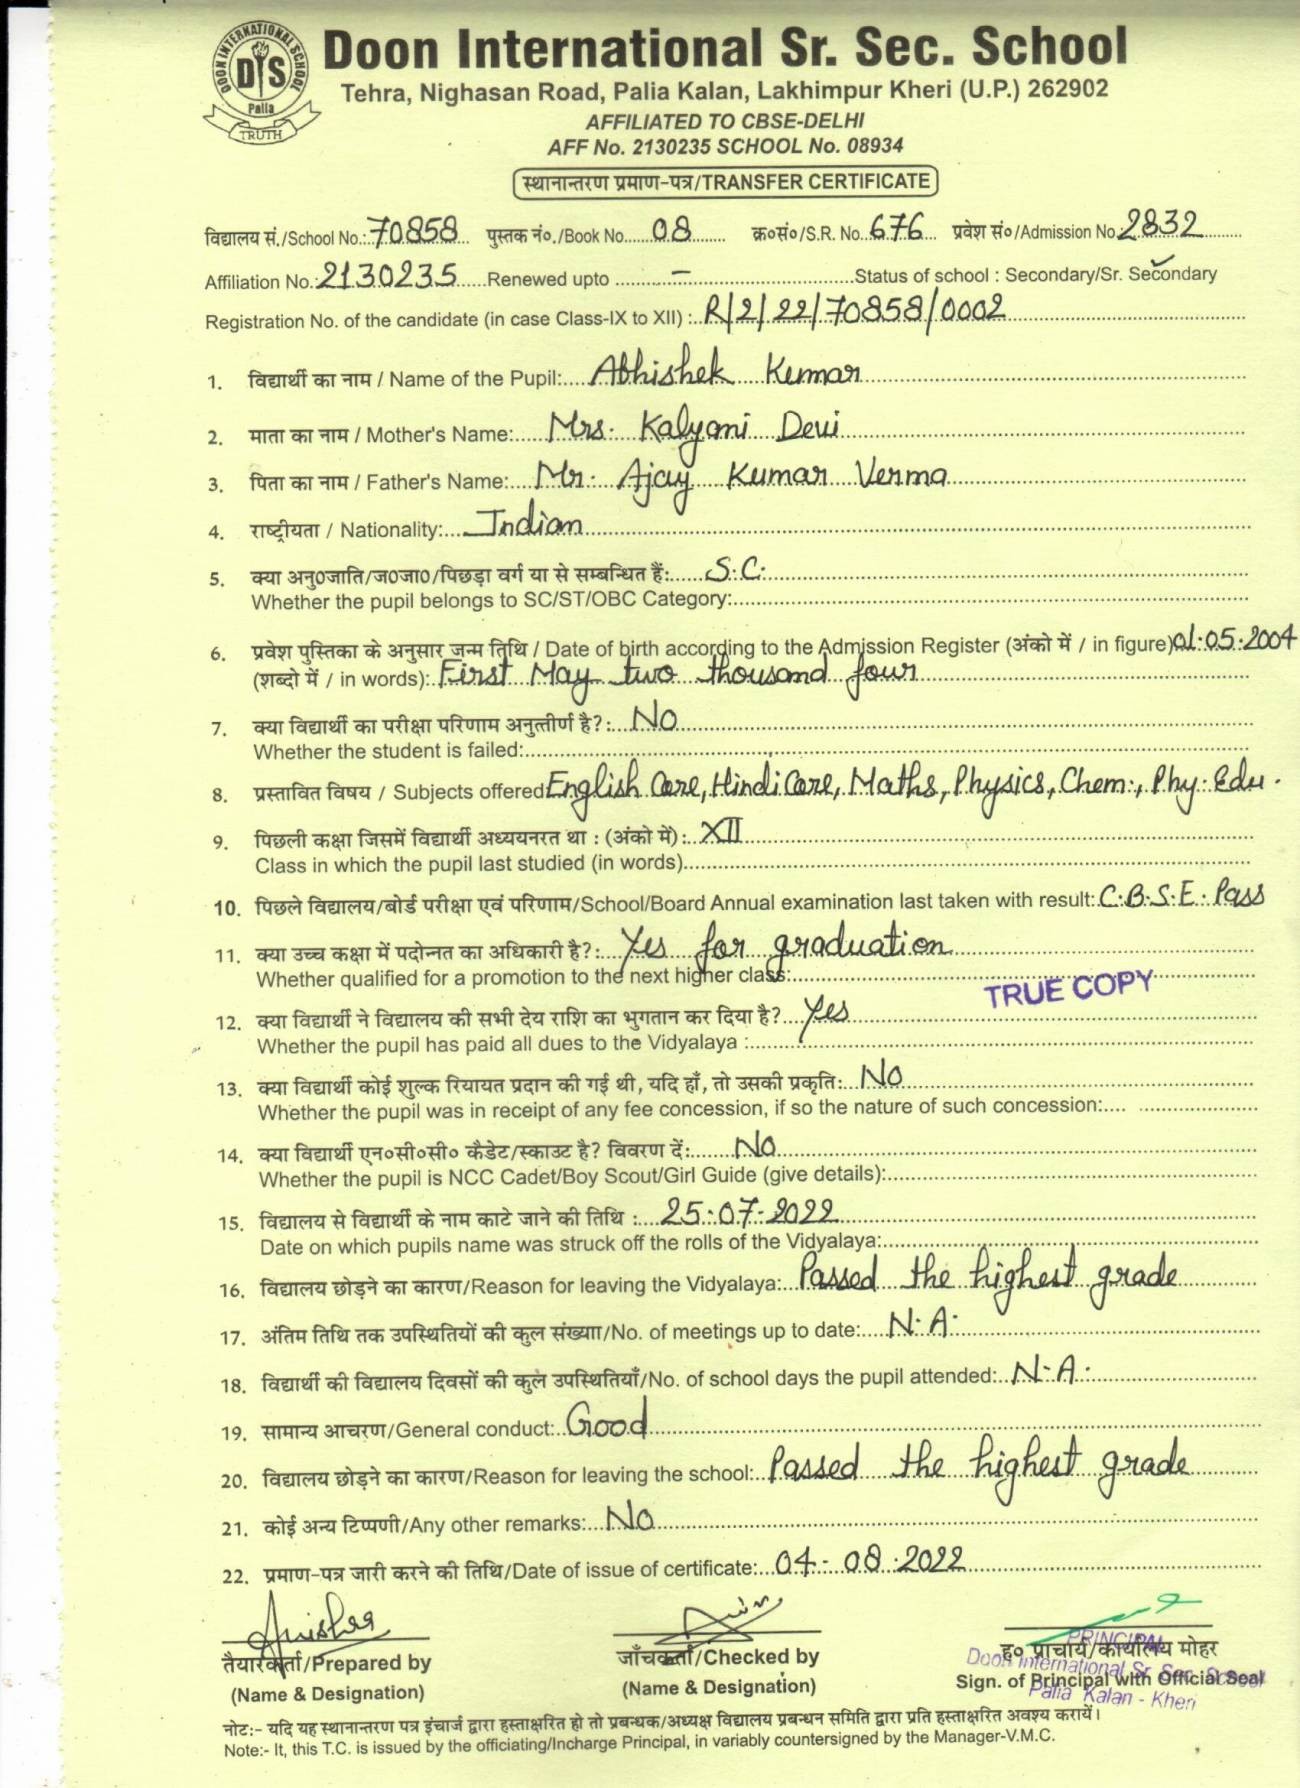 DOON INTERNATIONAL SCHOOL
DIS
Palia
TRUTH
Doon International Sr. Sec. School
Tehra, Nighasan Road, Palia Kalan, Lakhimpur Kheri (U.P.) 262902
AFFILIATED TO CBSE-DELHI
AFF No. 2130235 SCHOOL No. 08934
स्थानान्तरण प्रमाण-पत्र/TRANSFER CERTIFICATE
विद्यालय सं./School No.: 70858 पुस्तक नं०./Book No. 08 क्र०सं०/S.R. No. 676 प्रवेश सं०/Admission No. 2832
Affiliation No.: 2130235 Renewed upto - Status of school : Secondary/Sr. Secondary
Registration No. of the candidate (in case Class-IX to XII) : R/2/22/70858/0002
1. विद्यार्थी का नाम / Name of the Pupil: Abhishek Kumar
2. माता का नाम / Mother's Name: Mrs. Kalyani Devi
3. पिता का नाम / Father's Name: Mr. Ajay Kumar Verma
4. राष्ट्रीयता / Nationality: Indian
5. क्या अनु०जाति/ज०जा०/पिछड़ा वर्ग या से सम्बन्धित हैं: S.C.
Whether the pupil belongs to SC/ST/OBC Category:
6. प्रवेश पुस्तिका के अनुसार जन्म तिथि / Date of birth according to the Admission Register (अंको में / in figure) 01.05.2004
(शब्दो में / in words): First May two thousand four
7. क्या विद्यार्थी का परीक्षा परिणाम अनुत्तीर्ण है?: No
Whether the student is failed:
8. प्रस्तावित विषय / Subjects offered: English Core, Hindi Core, Maths, Physics, Chem., Phy. Edu.
9. पिछली कक्षा जिसमें विद्यार्थी अध्ययनरत था : (अंको में): XII
Class in which the pupil last studied (in words)
10. पिछले विद्यालय/बोर्ड परीक्षा एवं परिणाम/School/Board Annual examination last taken with result: C.B.S.E. Pass
11. क्या उच्च कक्षा में पदोन्नत का अधिकारी है?: Yes for graduation
Whether qualified for a promotion to the next higher class:
TRUE COPY
12. क्या विद्यार्थी ने विद्यालय की सभी देय राशि का भुगतान कर दिया है? Yes
Whether the pupil has paid all dues to the Vidyalaya :
13. क्या विद्यार्थी कोई शुल्क रियायत प्रदान की गई थी, यदि हाँ, तो उसकी प्रकृति: No
Whether the pupil was in receipt of any fee concession, if so the nature of such concession:
14. क्या विद्यार्थी एन०सी०सी० कैडेट/स्काउट है? विवरण दें: No
Whether the pupil is NCC Cadet/Boy Scout/Girl Guide (give details):
15. विद्यालय से विद्यार्थी के नाम काटे जाने की तिथि : 25-07-2022
Date on which pupils name was struck off the rolls of the Vidyalaya:
16. विद्यालय छोड़ने का कारण/Reason for leaving the Vidyalaya: Passed the highest grade
17. अंतिम तिथि तक उपस्थितियों की कुल संख्या/No. of meetings up to date: N.A.
18. विद्यार्थी की विद्यालय दिवसों की कुल उपस्थितियाँ/No. of school days the pupil attended: N.A.
19. सामान्य आचरण/General conduct: Good
20. विद्यालय छोड़ने का कारण/Reason for leaving the school: Passed the highest grade
21. कोई अन्य टिप्पणी/Any other remarks: No
22. प्रमाण-पत्र जारी करने की तिथि/Date of issue of certificate: 04-08-2022
तैयारकर्ता/Prepared by जाँचकर्ता/Checked by ह० प्राचार्य/कार्यालय मोहर
(Name & Designation) (Name & Designation) Sign. of Principal with Official Seal
PRINCIPAL
Doon International Sr. Sec. School
Palia Kalan - Kheri
नोट:- यदि यह स्थानान्तरण पत्र इंचार्ज द्वारा हस्ताक्षरित हो तो प्रबन्धक/अध्यक्ष विद्यालय प्रबन्धन समिति द्वारा प्रति हस्ताक्षरित अवश्य करायें।
Note:- It, this T.C. is issued by the officiating/Incharge Principal, in variably countersigned by the Manager-V.M.C.